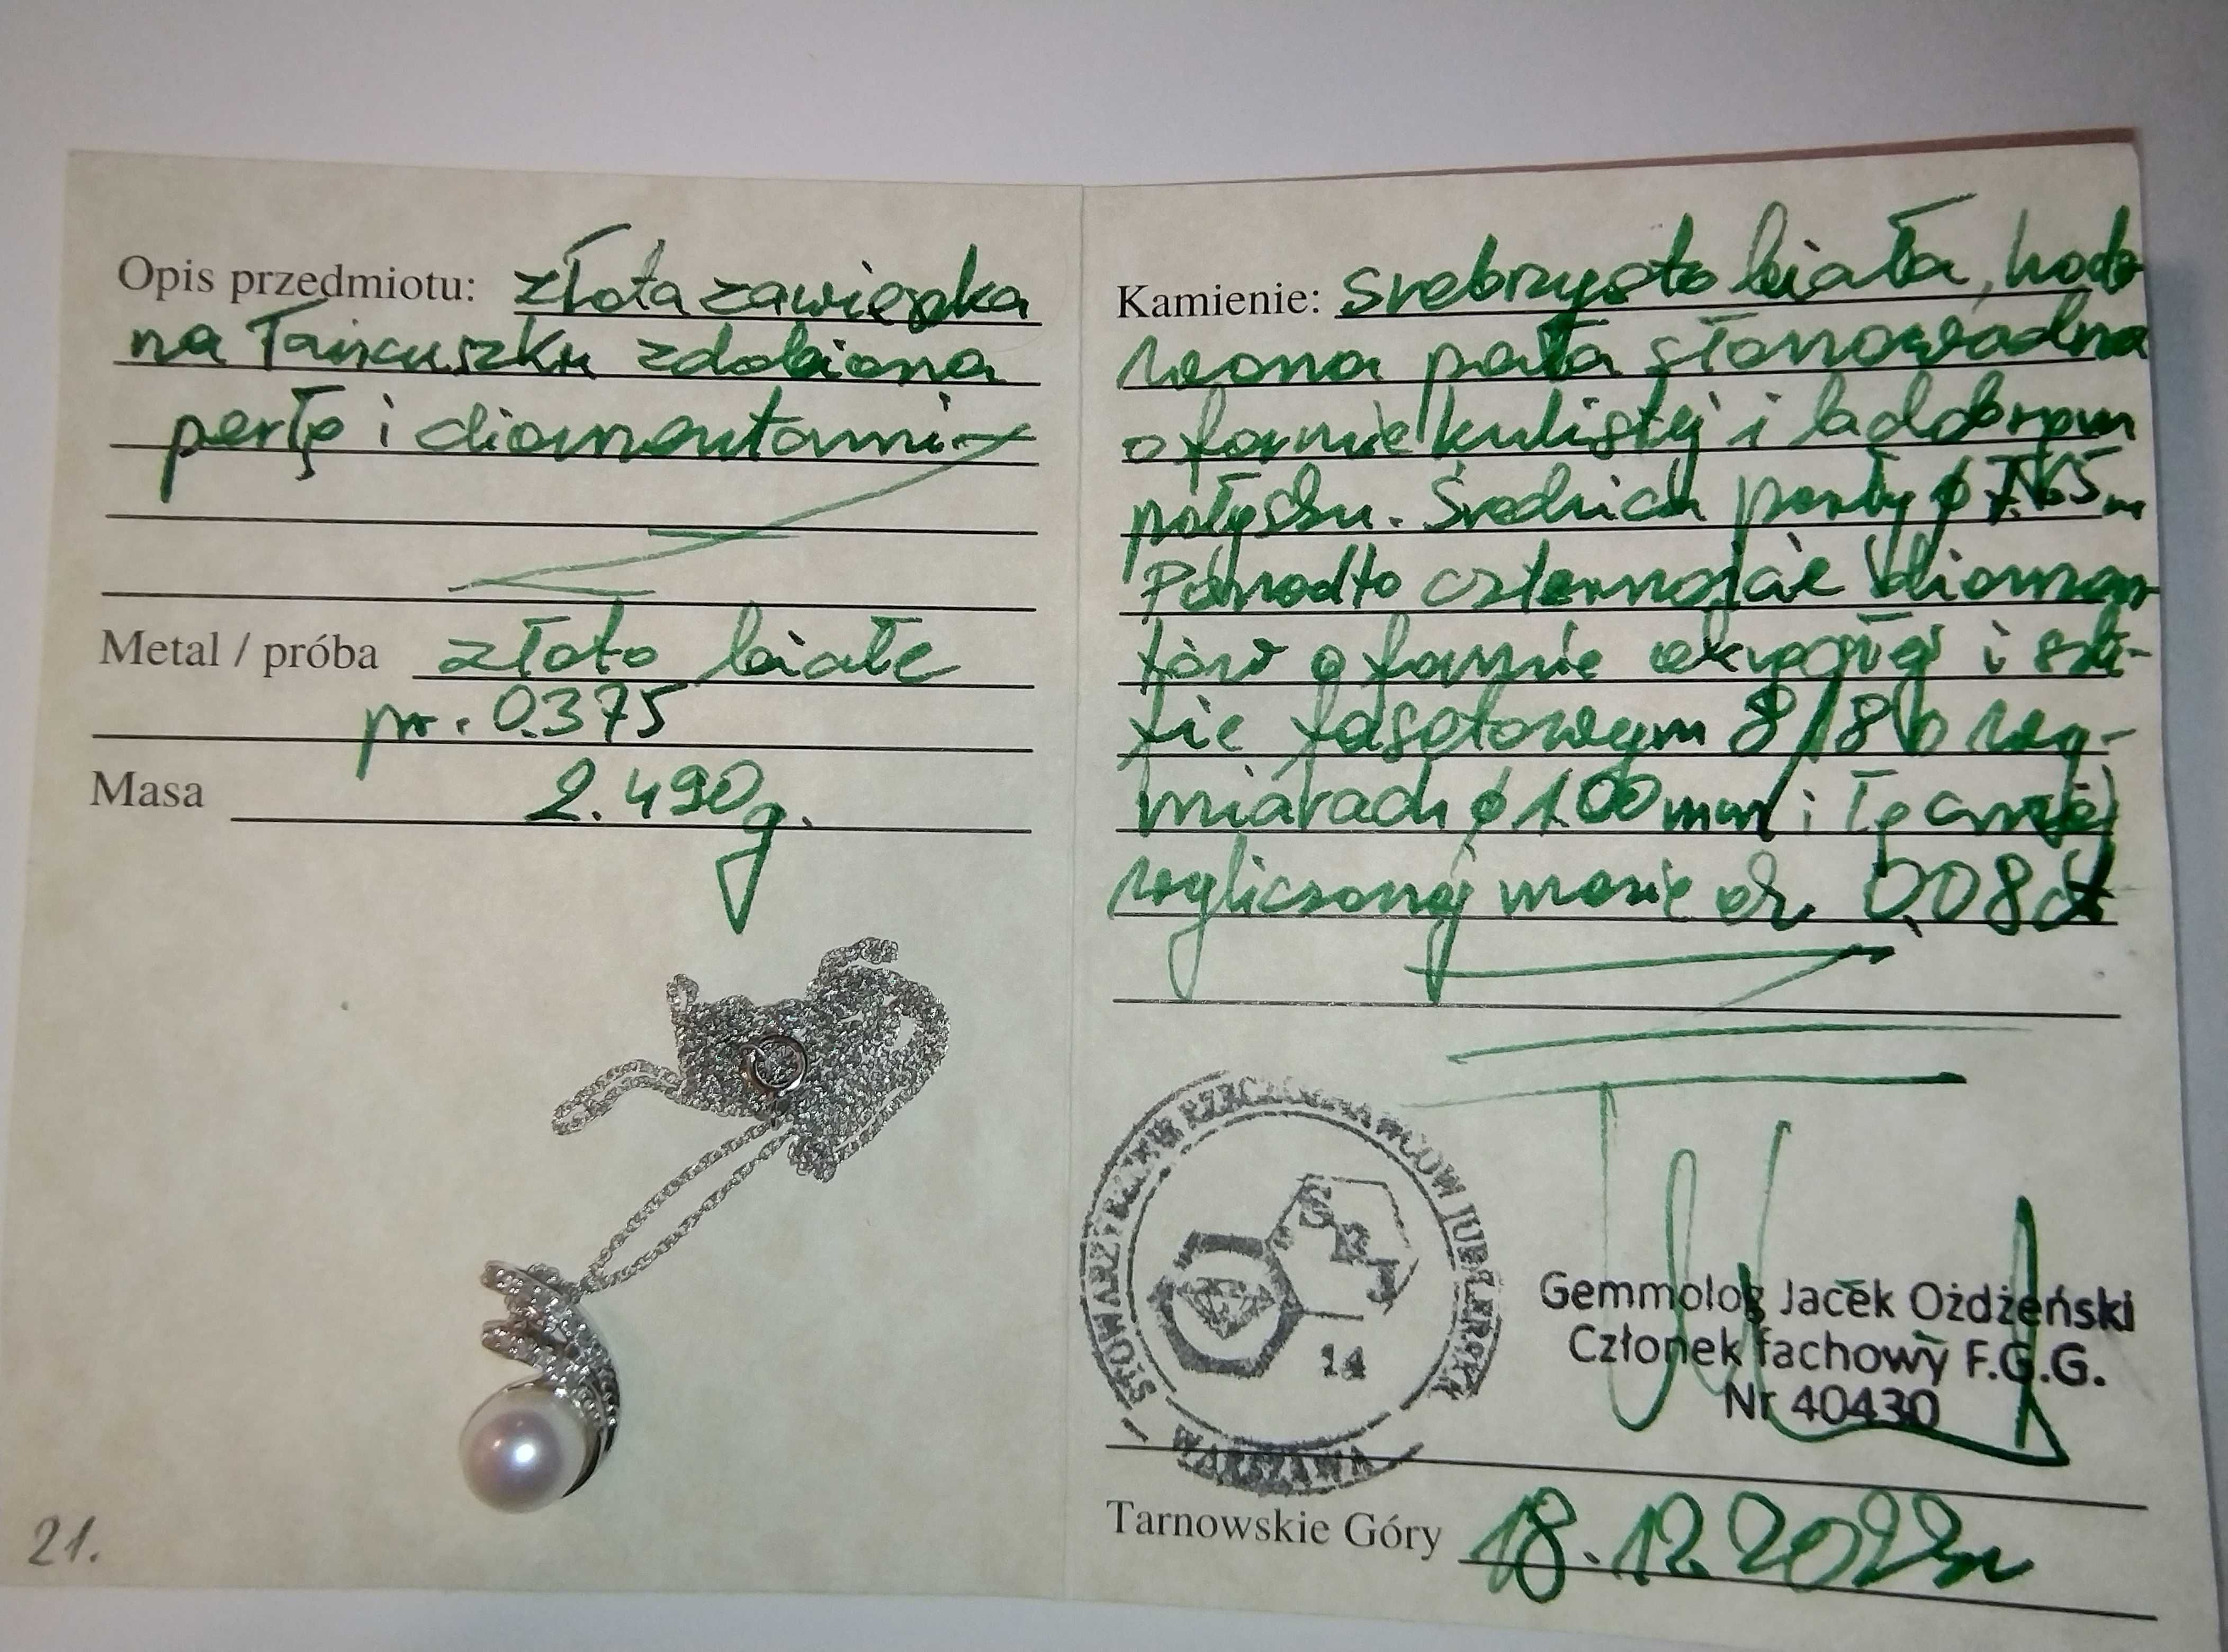 Opis przedmiotu: złota zawieszka
na łańcuszku zdobiona
perłą i diamentami
Metal / próba złoto białe
pr. 0.375
Masa 2.490g.
21.
Kamienie: srebrzysto biała, hodo-
wana perła słonowodna
o formie kulistej i b.dobrym
połysku. Średnica perły ø 7.65m
Ponadto czternaście diamen-
tów o formie okrągłej i szli-
fie fasetowym 8/8 o wy-
miarach ø 1.00mm i łącznej
wyliczonej masie ok. 0.08 ct
STOWARZYSZENIE RZECZOZNAWCÓW JUBILERSKICH
SRJ
14
WARSZAWA
Gemmolog Jacek Ożdżeński
Członek fachowy F.G.G.
Nr 40430
Tarnowskie Góry 18.12.2022r